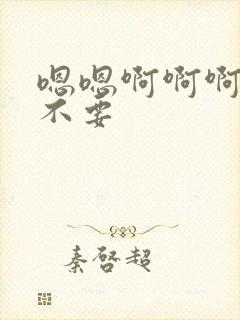 嗯嗯啊啊啊
不要
秦啓超